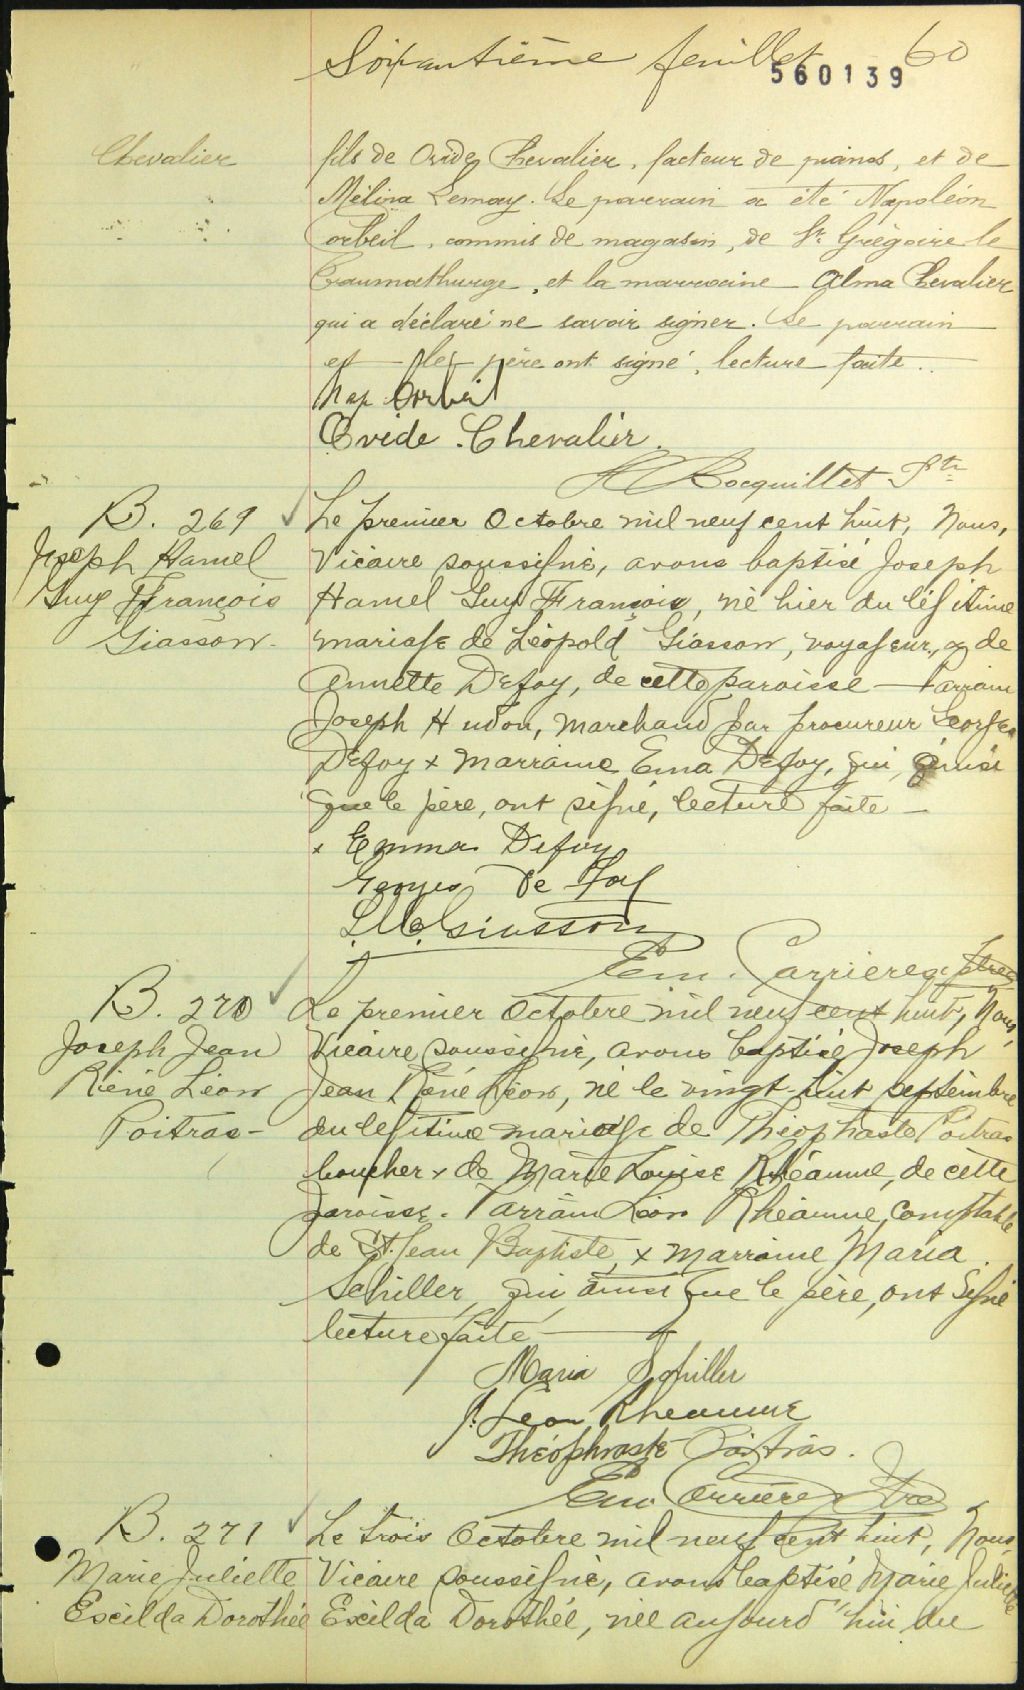 Soixantième feuillet 60
560139
Chevalier
fils de Ovide Chevalier, facteur de pianos, et de
Mélina Lemay. Le parrain a été Napoléon
Corbeil, commis de magasin, de St Grégoire le
Traumathurge, et la marraine Alma Chevalier
qui a déclaré ne savoir signer. Le parrain
et le père ont signé, lecture faite.
Nap Corbeil
Ovide Chevalier.
Bocquillet Ptr
B. 269
Joseph Hamel
Guy François
Giasson.
Le premier Octobre mil neuf cent huit, Nous,
Vicaire soussigné, avons baptisé Joseph
Hamel Guy François, né hier du légitime
mariage de Léopold Giasson, voyageur, & de
Annette Defoy, de cette paroisse — Parrain
Joseph Hudon, marchand par procureur Georges
Defoy & marraine Ema Defoy, qui, ainsi
que le père, ont signé, lecture faite —
Emma Defoy
Georges De Foy
L. Giasson
Em. Carrières ptre
B. 270
Joseph Jean
Réné Léon
Poitras -
Le premier Octobre mil neuf cent huit, Nous,
Vicaire soussigné, avons baptisé Joseph
Jean Réné Léon, né le vingt-huit septembre
du légitime mariage de Théophraste Poitras
boucher & de Marie Louise Rhéaume, de cette
paroisse. Parrain Léon Rhéaume, comptable
de St Jean Baptiste, & marraine Maria
Schiller, qui, ainsi que le père, ont signé
lecture faite —
Maria Schiller
J. Leon Rheaume
Théophraste Poitras.
Em. Carrières Ptre
B. 271
Marie Juliette
Exèilda Dorothée
Le trois Octobre mil neuf cent huit, Nous,
Vicaire soussigné, avons baptisé Marie Juliette
Exèilda Dorothée, née aujourd'hui du